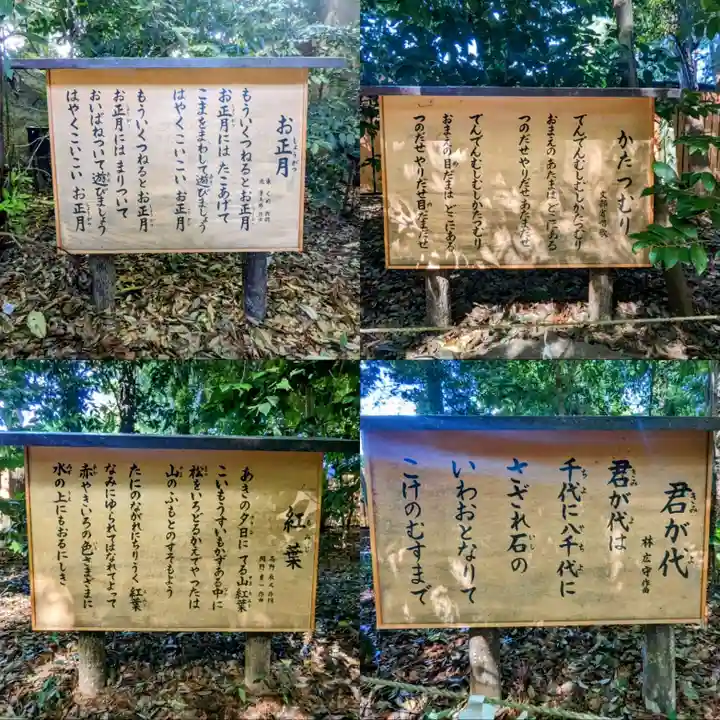 お正月
もういくつねるとお正月
お正月には たこあげて
こまをまわして遊びましょう
はやくこいこい お正月
もういくつねるとお正月
お正月には まりついて
おいばねついて遊びましょう
はやくこいこい お正月
かたつむり
文部省唱歌
でんでんむしむしかたつむり
おまえのあたまは どこにある
つのだせ やりだせ あたまだせ
でんでんむしむしかたつむり
おまえの目だまは どこにある
つのだせ やりだせ 目だまだせ
紅葉
高野辰之 作詞
岡野貞一 作曲
あきの夕日に てる山紅葉
こいもうすいもかずある中に
松をいろどるかえでやつたは
山のふもとのすそもよう
たにのながれにちりうく 紅葉
なみにゆられてはなれてよって
赤やきいろの色さまざまに
水の上にもおるにしき
君が代
林 広守 作曲
君が代は
千代に八千代に
さざれ石の
いわおとなりて
こけのむすまで